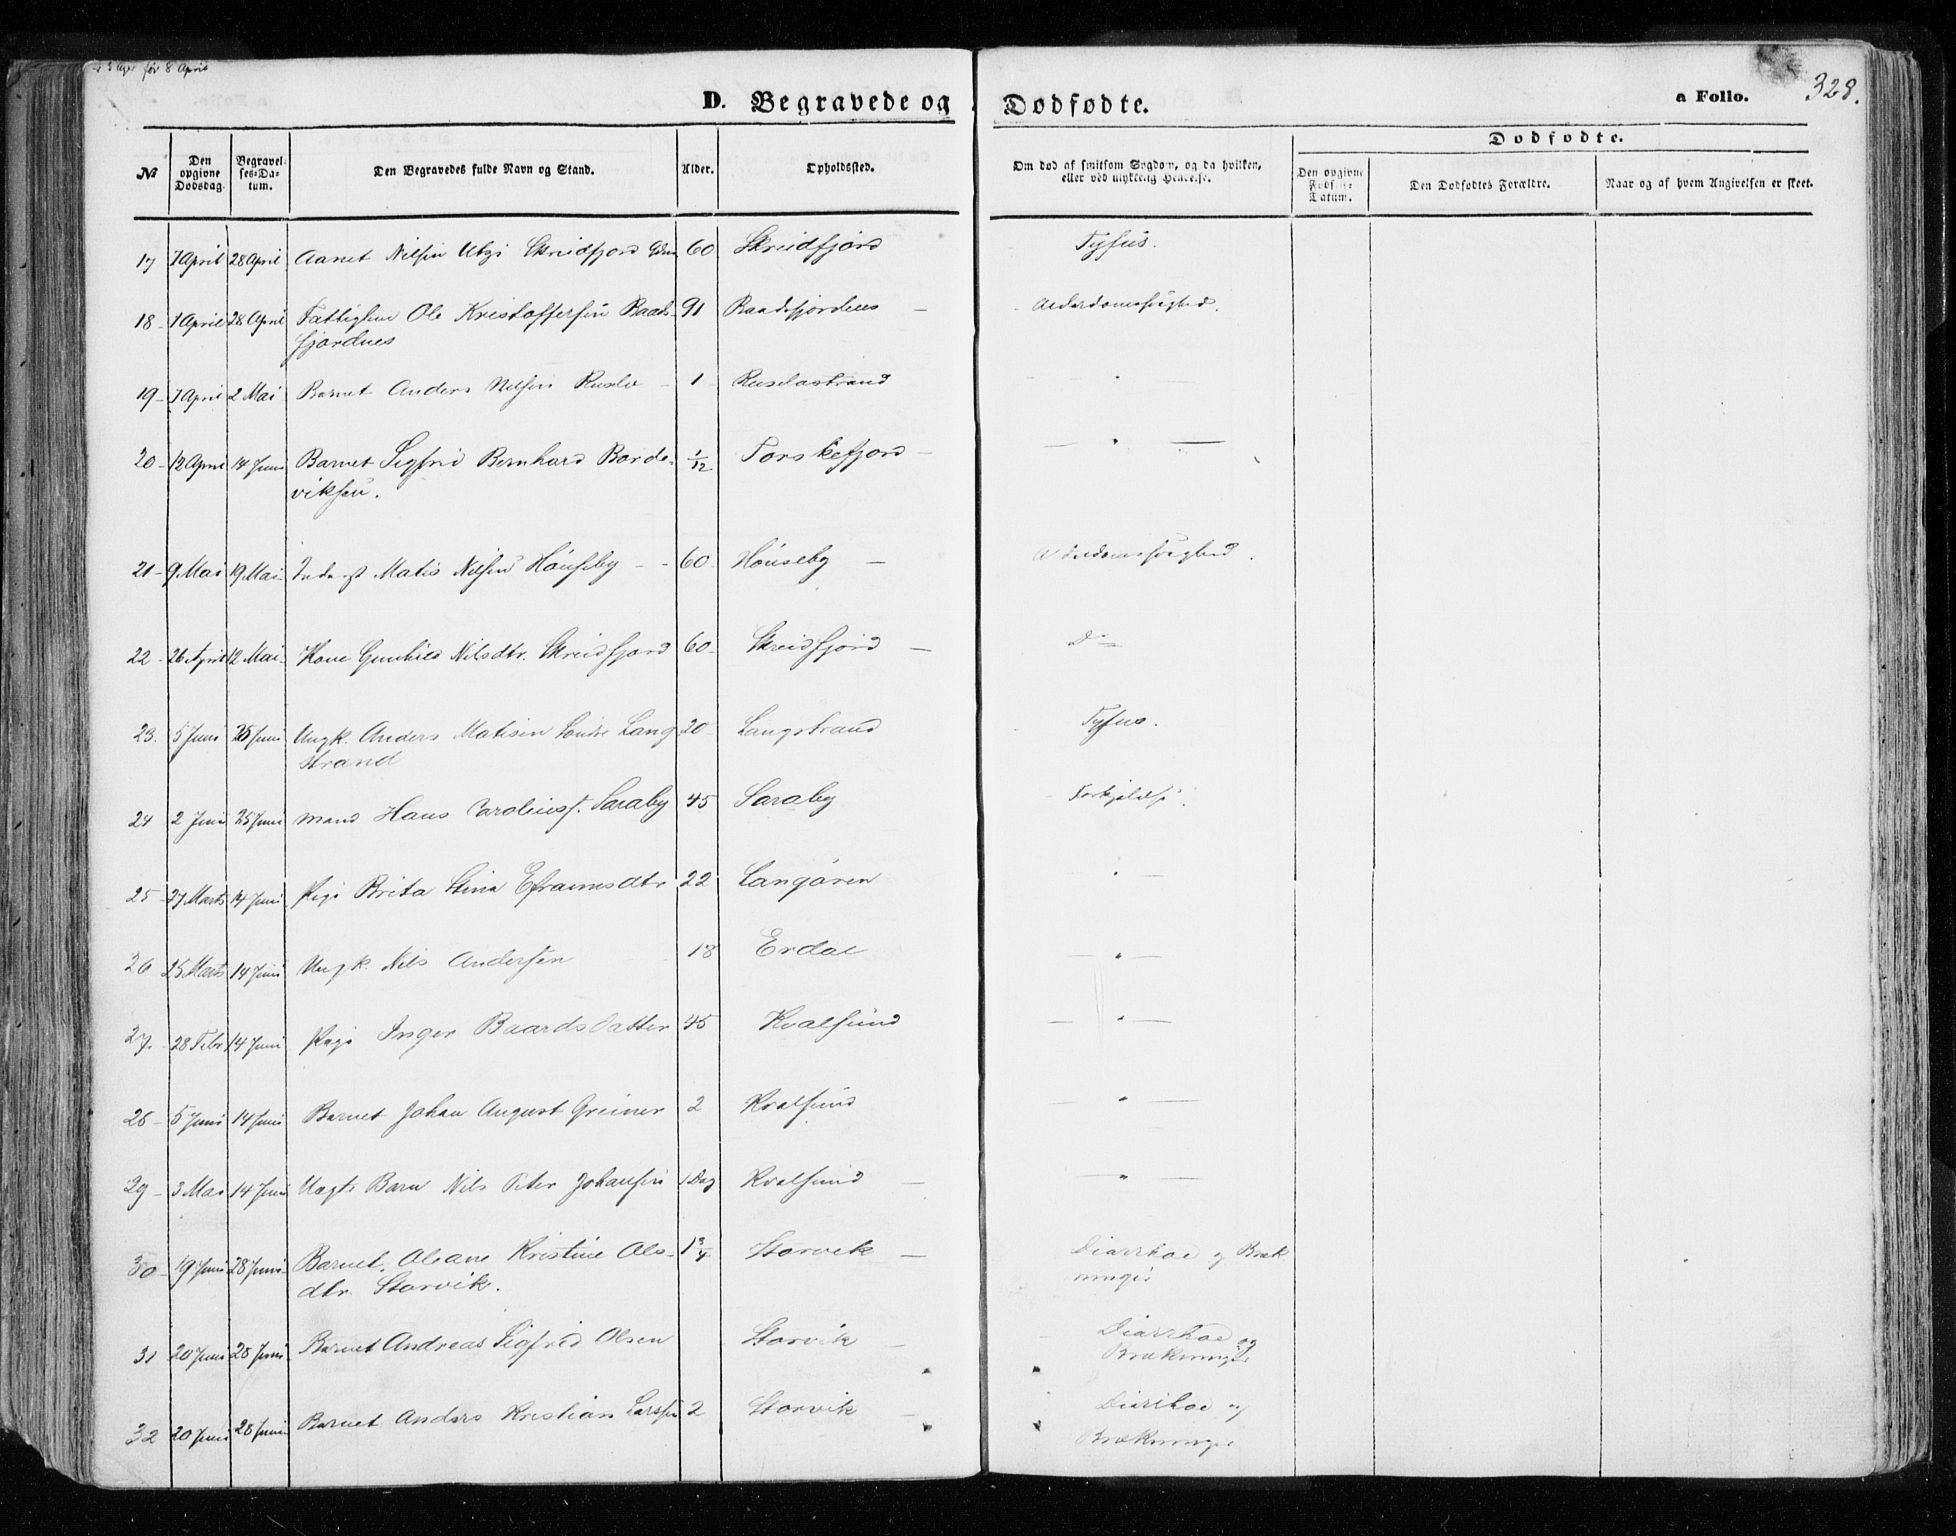 før 8 April
328.
D. Begravede og Dødfødte.
a Folio.
Dødfødte.
№
Den opgivne Dødsdag.
Begravelses-Datum.
Den Begravedes fulde Navn og Stand.
Alder.
Opholdssted.
Om død af smitsom Sygdom, og da hvilken, eller ved ulykkelig Hendelse.
Den opgivne Fødsels-Datum.
Den Dødfødtes Forældre.
Naar og af hvem Angivelsen er skeet.
17 7 April 28 April Nilsen Skreidfjord 60 Skreidfjord Tyfus.
18 - 1 April 28 April Ole Kristoffersen Raads- 91 Raadsfjordnes - Alderdomssvaghed.
fjordnes
19 - 7 April 2 Mai Barnet Anders Nilsen - 1 - Ruselastrand - " -
20 - 12 April 14 Juni Barnet Sigfrid Bernhard Borde- 1/12 Torskefjord - - " -
viksen.
21 - 9 Mai 19 Mai Inderst Matis Nilsen Hønseby - - 60 Hønseby - Alderdomssvaghed.
22 - 26 April 12 Mai Kone Gunhild Nilsdtr. Skreidfjord 60 - Skreidfjord - Do
23. 5 Juni 25 Juni Ungk. Anders Matisen Søndre Lang 20 - Langstrand Tyfus.
strand
24 2 Juni 25 Juni Mand Hans Saraby 45 Saraby
25 - 27 Marts 14 Juni Pige Brita Stina Efraimsdtr 22 Langøren " -
26 25 Marts 14 Juni Ungk. Nils Andersen 18 Erdal - " -
27. 28 Febr 14 Juni Pige Inger Baards Datter 45 Kvalsund - " -
28 - 5 Juni 14 Juni Barnet Johan August Greiner 2 Kvalsund - " -
29 - 3 Mai 14 Juni Uægte Barn Nils Peter Johansen 1 Dag Kvalsund - - " -
30 - 19 Juni 28 Juni Barnet Kristine Ols- 1 3/4 Storvik - Diarrhoe og Bræk
dtr. Storvik. ninger
31 20 Juni 28 Juni Barnet Andreas Sigfrid Olsen Storvik - Diarrhoe og
Brækninger
32 20 Juni 28 Juni Barnet Anders Kristian Larsen 2 Storvik - Diarrhoe og
Brækninger